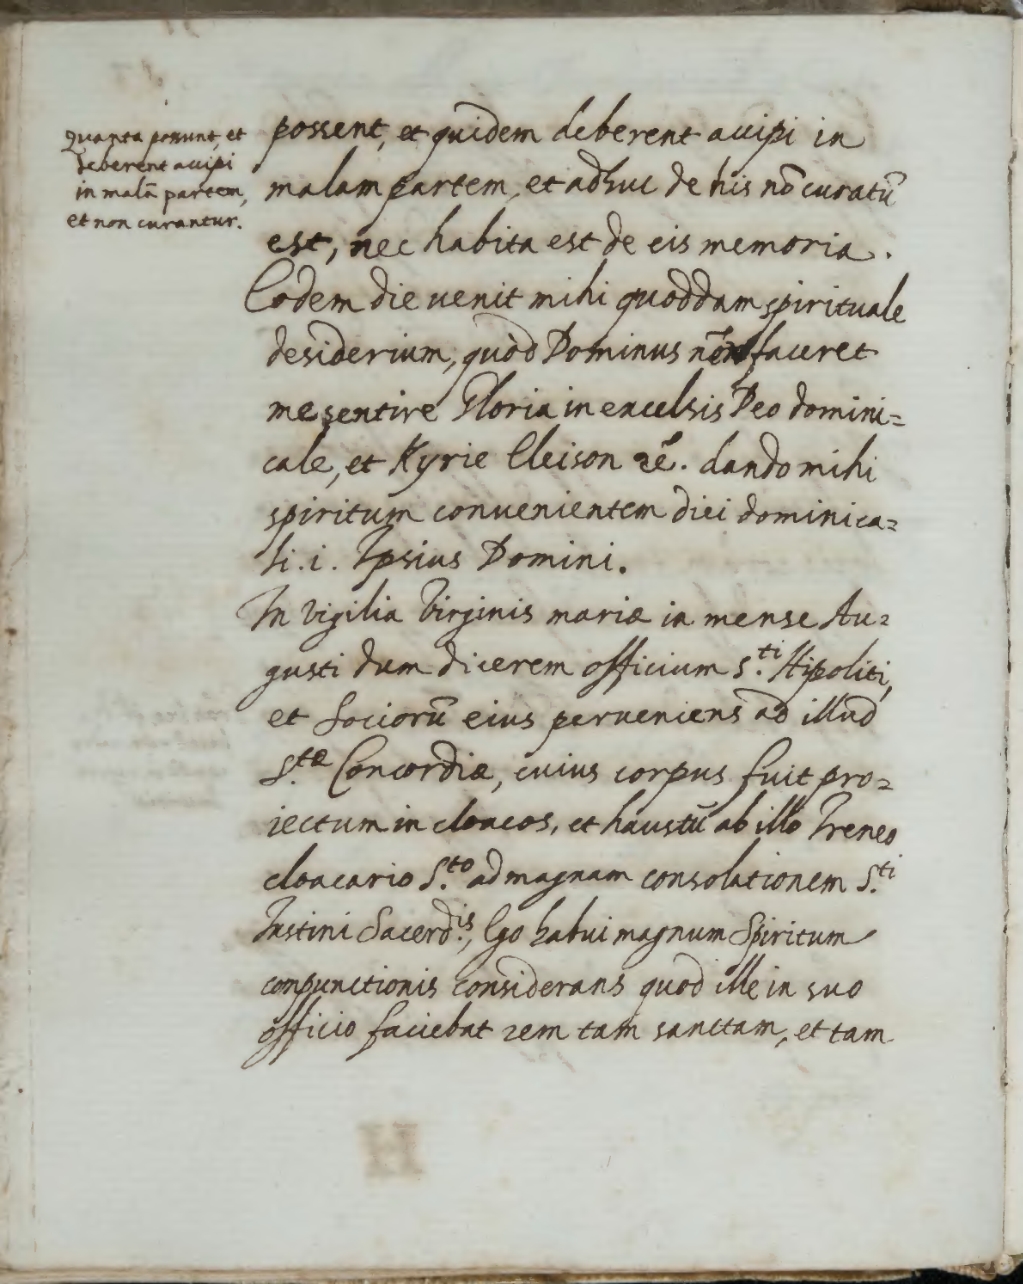 Quanta possunt, et
deberent accipi
in malā partem,
et non curantur.
possent, et quidem deberent accipi in
malam partem, et adhuc de his nō curatū
est, nec habita est de eis memoria.
Eodem die uenit mihi quoddam spirituale
desiderium, quòd Dominus faceret
me sentire Gloria in excelsis Deo domini=
cale, et Kyrie Eleison &c. dando mihi
spiritum conuenientem diei dominica=
li .i. Ipsius Domini.
In Vigilia Virginis mariæ in mense Au=
gusti dum dicerem officium S.ti Hipoliti,
et Sociorū eius perueniens ad illud
S.tæ Concordiæ, cuius corpus fuit pro=
iectum in cloacos, et haustū ab illo Ireneo
cloacario S.to ad magnam consolationem S.ti
Iustini Sacerd.is, Ego habui magnum Spiritum
conpunctionis considerans quod ille in suo
officio faciebat rem tam sanctam, et tam